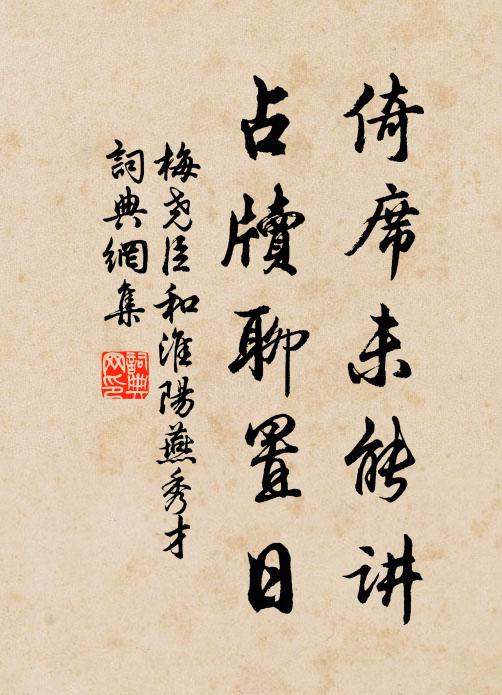 倚席未能讲
占牍聊置日
梅尧臣和淮陽燕秀才
詞典網集
詞典网印